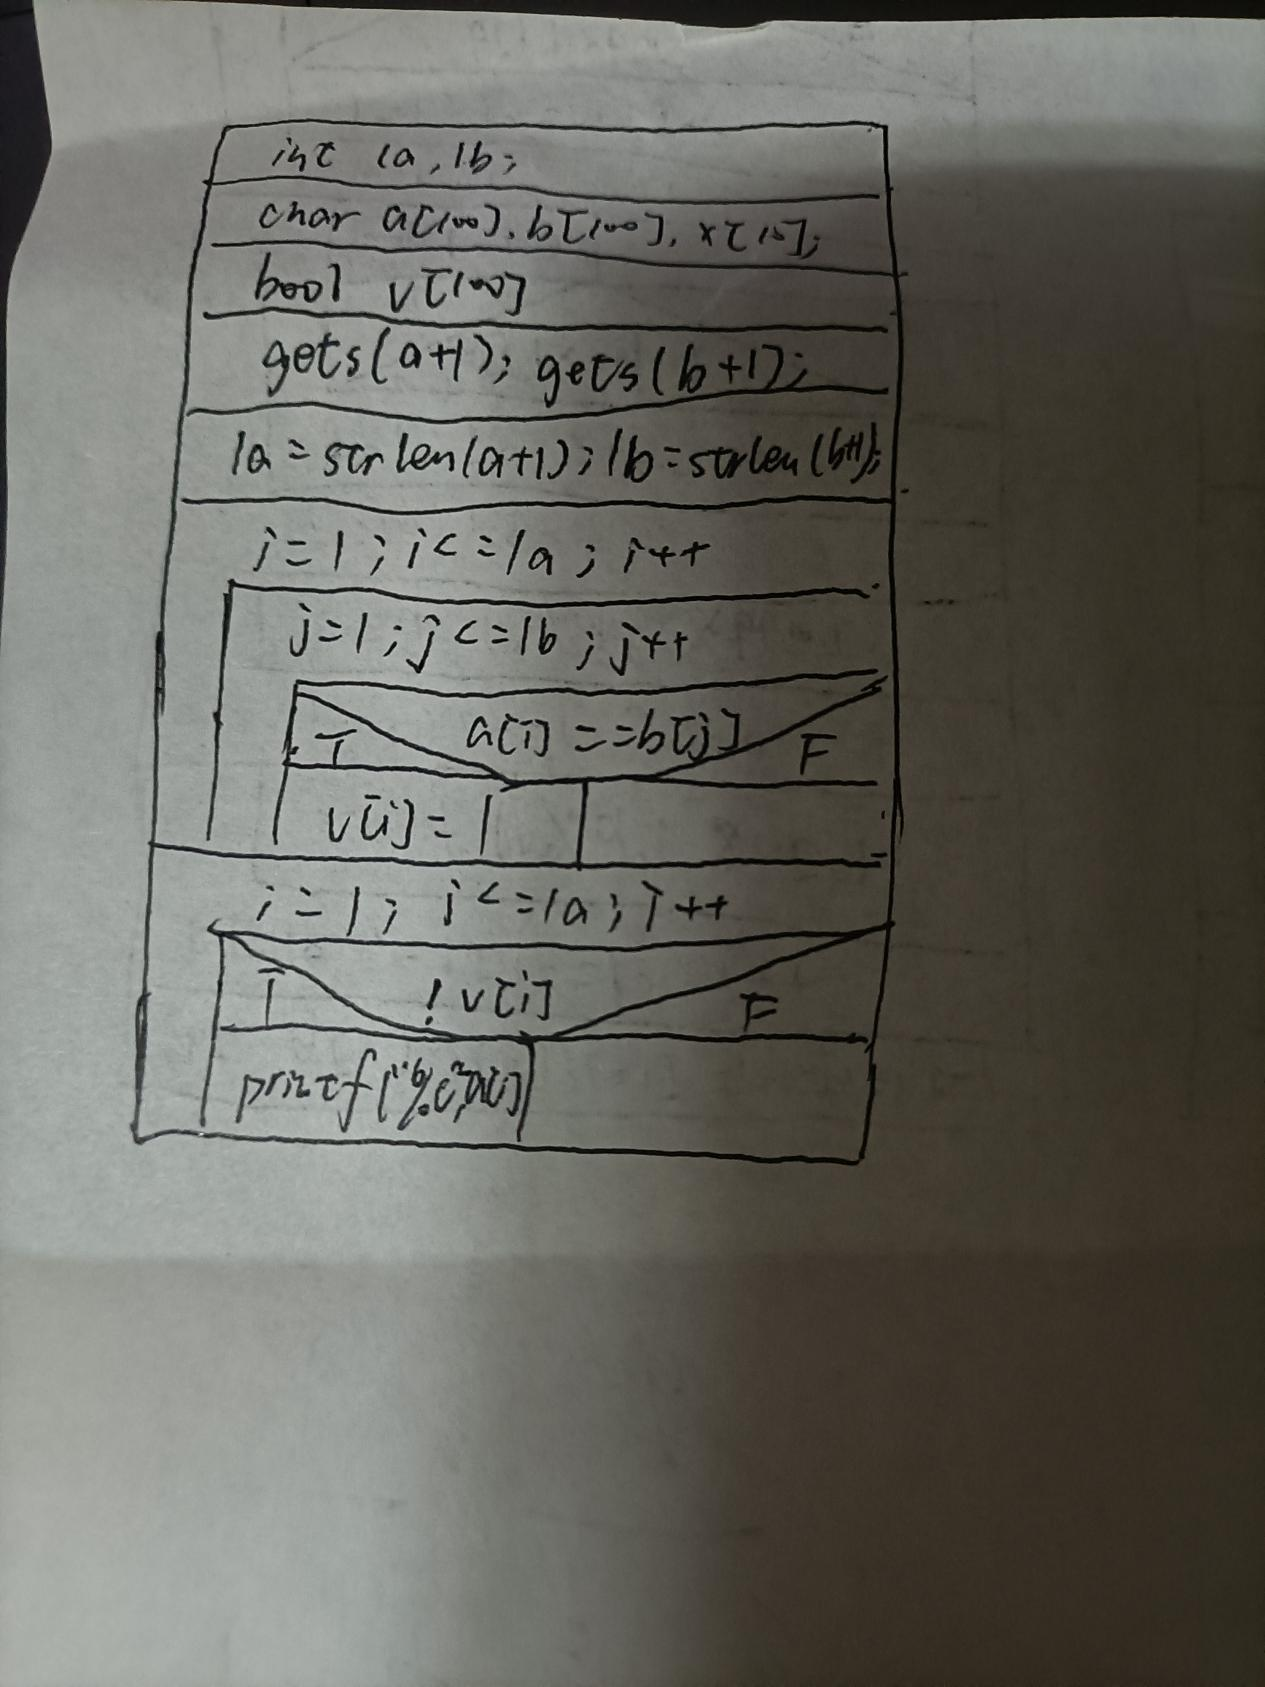 int la, lb;
char a[100], b[100], x[10];
bool v[100]
gets(a+1); gets(b+1);
la=strlen(a+1); lb=strlen(b+1);
i=1; i<=la; i++
j=1; j<=lb; j++
T a[i]==b[j] F
v[i]=1
i=1; i<=la; i++
T !v[i] F
printf("%c",a[i]